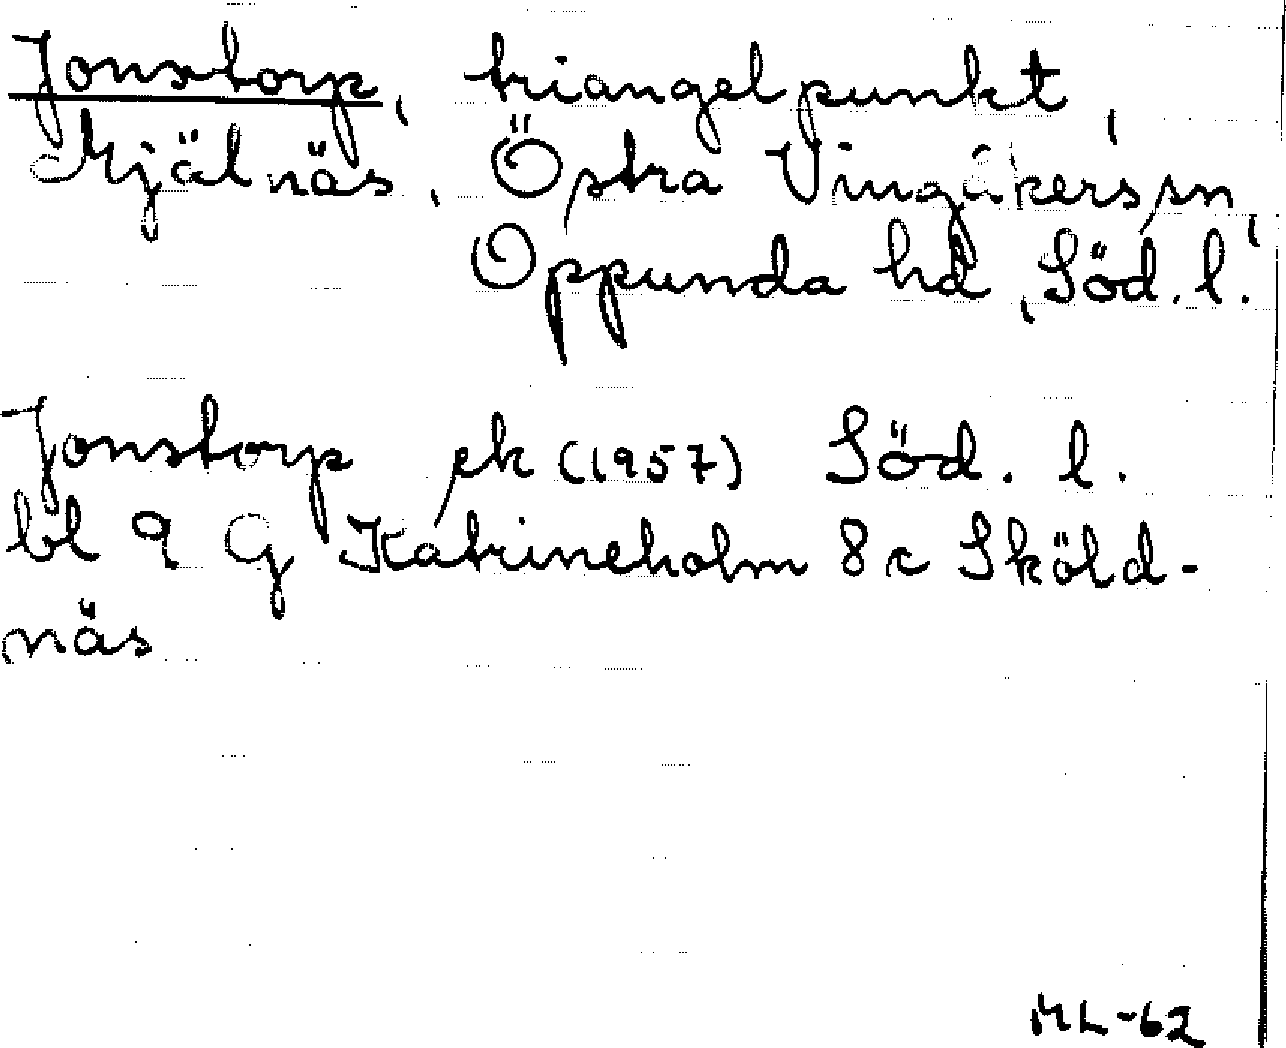 Jonstorp, triangelpunkt,
Mjälnäs, Östra Vingåkers sn,
Oppunda hd, Söd. l.
Jonstorp ek (1957) Söd. l.
bl 9 G Katrineholm 8 c Sköld-
näs
ML-62